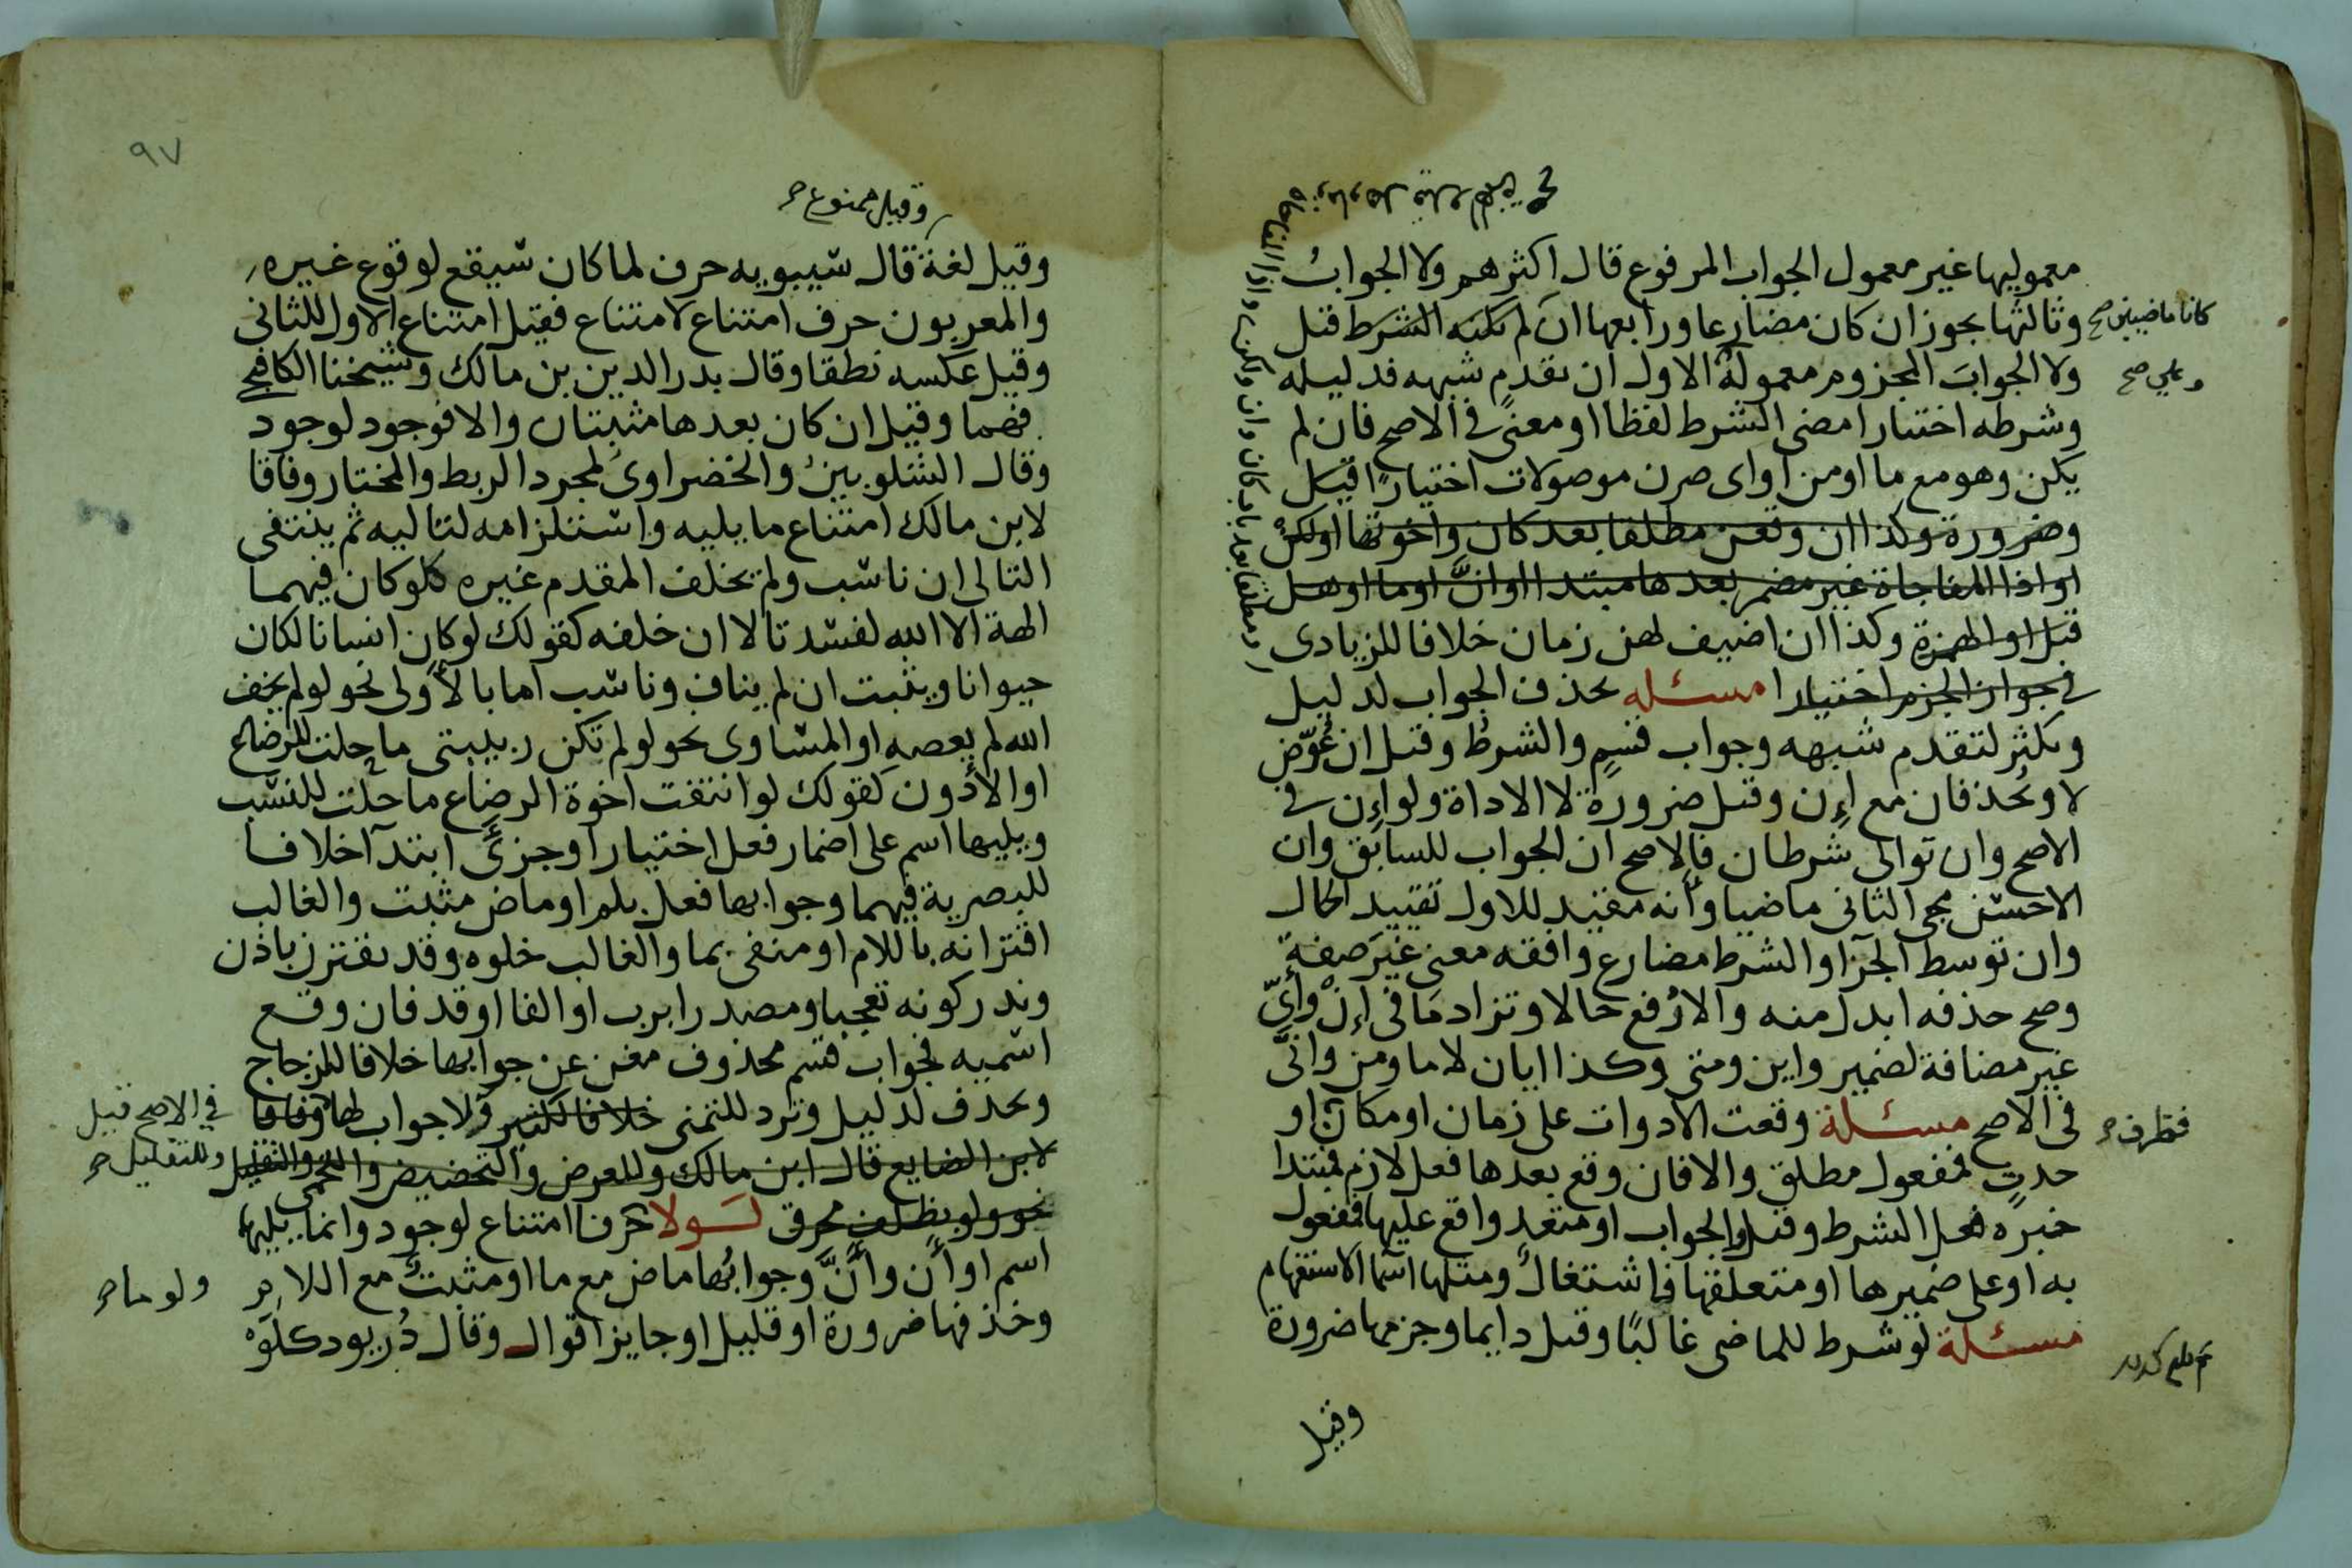 معموليها غير معمول الجواب المرفوع قال اكثرهم ولا الجوابُ
كانا ماضيين صح
وثالثها يجوز ان كان مضارعا ورابعها ان لم يكنه الشرط قيل
وعلي صح
ولا الجوابَ المجزوم معمولَه الاول ان تقدم شبهه فدليله
وشرطه اختيارا مضى الشرط لفظا او معنًى في الاصح فان لم
يكن وهو مع ما او من او اى صرن موصولات اختيارًا قيل
وضرورة وكذا ان وقعن مطلقا بعد كان واخوتها او لكنْ
او اذا المفاجاة غير مضمر بعدها مبتدا او انَّ او ما او هل
قيل او الهمزة وكذا ان اضيف لهن زمان خلافا للزيادى
في جواز الجزم اختيارا مسئله يحذف الجواب لدليل
ويكثر لتقدم شبهه وجواب قسم والشرط وقيل ان عُوّض
لا ويحذفان مع اِن وقيل ضرورة لا الاداة ولو اِن في
الاصح وان توالى شرطان فالاصح ان الجواب للسابق وان
الاحسن مجى الثانى ماضيا وأنه مقيد للاول تقييد الحال
وان توسط الجزا والشرط مضارع وافقه معنى غيرَ صفةٍ
وصح حذفه ابدل منه والا رُفع حالا وتزاد ما في اِنْ وأىّ
غير مضافة لضمير واين ومتى وكذا ايان لا ما ومن وانَّى
في الاصح مسئلة وقعت الادوات على زمان او مكان او
فظرف صح
حدثٍ فمفعول مطلق والا فان وقع بعدها فعل لازم فمبتدا
خبره فعل الشرط وقيل والجواب او متعد واقع عليها فمفعول
به او على ضميرها او متعلقها فاشتغالٌ ومثلها اسما الاستفهام
مسئلة لو شرط للماضى غالبًا وقيل دايما وجزمها ضرورة
وقيل
٩٧
وقيل ممنوع صح
وقيل لغة قال سيبويه حرف لما كان سيقع لوقوع غيره
والمعربون حرف امتناع لامتناع فقيل امتناع الاول للثانى
وقيل عكسه نطقا وقال بدر الدين بن مالك وشيخنا الكافيجي
فهما وقيل ان كان بعدها مثبتان والا فوجود لوجود
وقال الشلوبينُ والخضراوىُ لمجرد الربط والمختار وفاقا
لابن مالك امتناع ما يليه واستلزامه لتاليه ثم ينتفى
التالى ان ناسب ولم يخلف المقدم غيره كلو كان فيهما
الهة الا الله لفسدتا لا ان خلفه كقولك لو كان انسانا لكان
حيوانا ويثبت ان لم يناف وناسب اما بالأولى نحو لو لم يخف
الله لم يعصه او المساوى نحو لو لم تكن ربيبتى ما حلت للرضاع
او الأدون كقولك لو انتفت اخوة الرضاع ما حلت للنسب
ويليها اسم على اضمار فعل اختيارا وجزئَى ابتدآ خلافا
للبصرية فيهما وجوابها فعل بلم او ماض مثبت والغالب
اقترانه باللام او منفى بما والغالب خلوه وقد يقترن باذن
وندر كونه تعجبا ومصدرا برب او الفا او قد فان وقع
اسميه فجواب قسم محذوف مغن عن جوابها خلافا للزجاج
ويحذف لدليل وترد للتمنى خلافا لكثير ولا جواب لها وفاقا
في الاصح قيل
لابن الضايع قال ابن مالك وللعرض والتحضيض والتمنى والتقليل
وللتقليل صح
نحو ولو بظلف محرق لولا حرف امتناع لوجود وانما يليها
اسم او أن وأنَّ وجوابُها ماض مع ما او مثبتٌ مع اللام
ولو ما صح
وحذفها ضرورة او قليل او جايز اقوال وقال دُريود كلَوْ